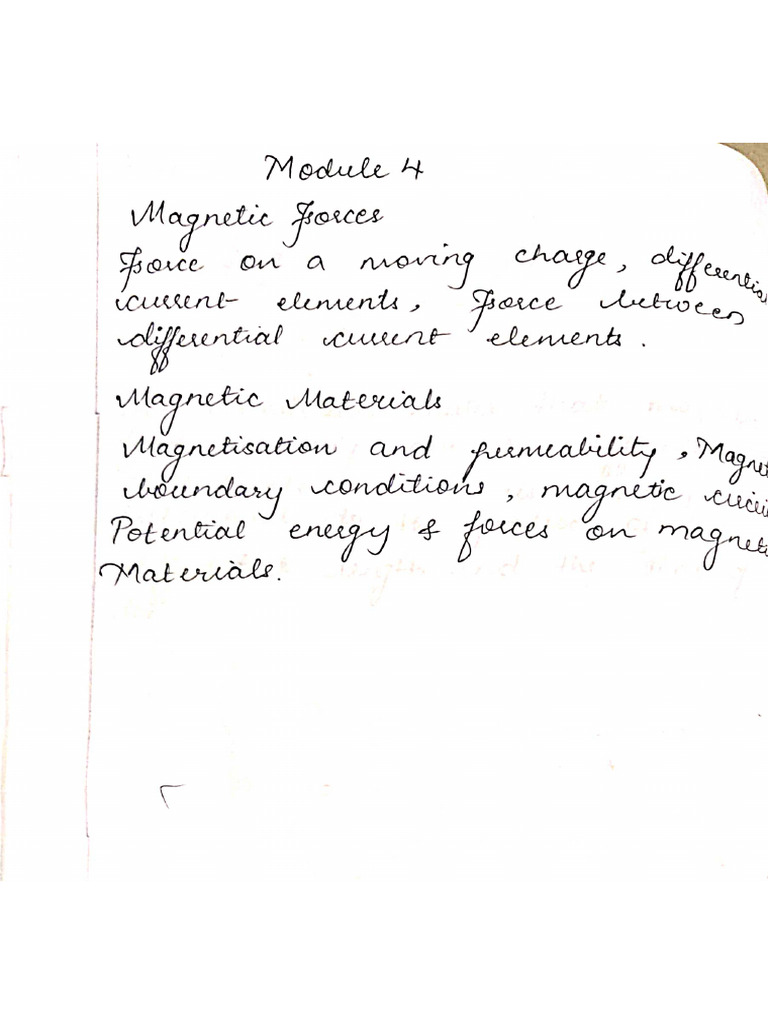 Module 4
Magnetic Forces
Force on a moving charge, differential
current elements, Force between
differential current elements.
Magnetic Materials
Magnetisation and permeability, Magnet
boundary conditions, magnetic
Potential energy & forces on magneti
Materials.